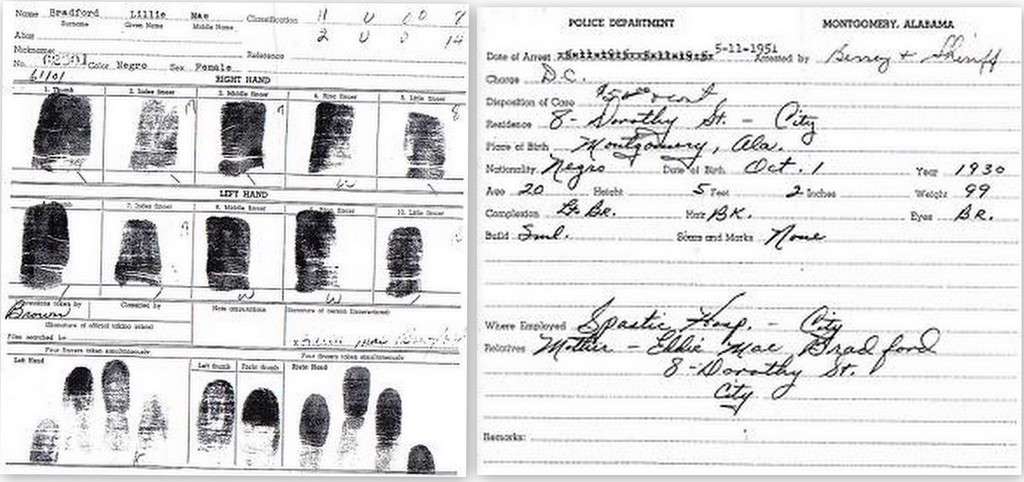 Name Bradford Lillie Mae Classification 11 U 00 7
Surname Given Name Middle Name
Alias 2 U 0 14
Nickname: Reference
No. Color Negro Sex Female
61101
RIGHT HAND
1. Thumb 2. Index Finger 3. Middle Finger 4. Ring Finger 5. Little Finger
LEFT HAND
6. Thumb 7. Index Finger 8. Middle Finger 9. Ring Finger 10. Little Finger
Impressions taken by Classified by Note amputations
Brown
(Signature of official taking prints)
Files searched by
Four fingers taken simultaneously Four fingers taken simultaneously
Left Hand Left thumb Right thumb Right Hand
POLICE DEPARTMENT MONTGOMERY, ALABAMA
Date of Arrest 5-11-1951 Arrested by
Charge D.C.
Disposition of Case $50
Residence 8- Dorothy St. - City
Place of Birth Montgomery, Ala.
Nationality Negro Date of Birth Oct. 1 Year 1930
Age 20 Height 5 Feet 2 Inches Weight 99
Complexion Lt. Br. Hair BK. Eyes BR.
Build Sml. Scars and Marks None
Where Employed Spastic Hosp. - City
Relatives Mother - Eddie Mae Bradford
8-Dorothy St.
City
Remarks: